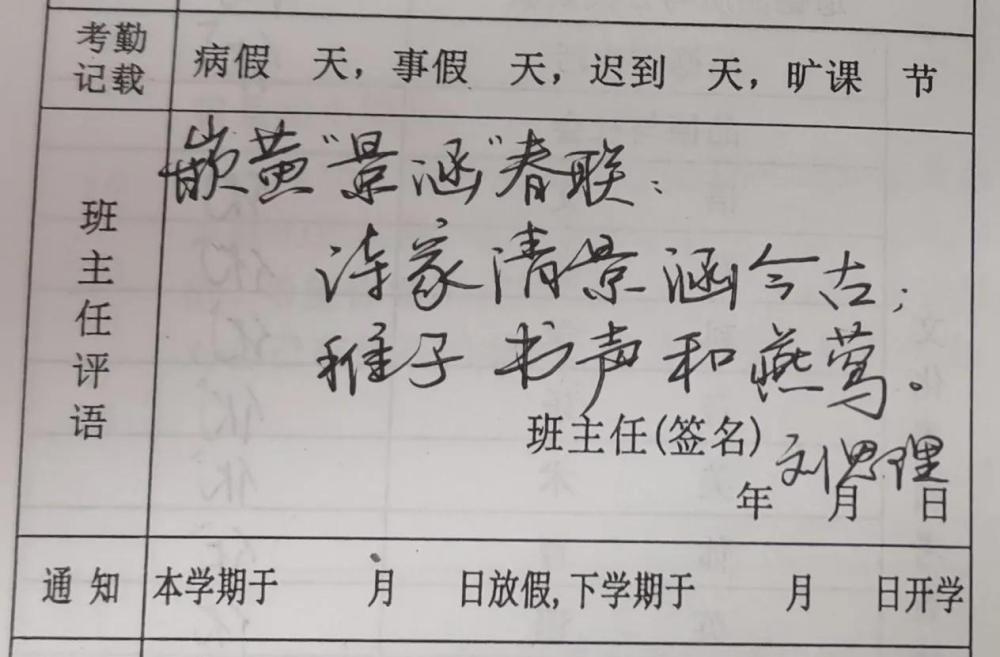 考勤
记载
病假 天，事假 天，迟到 天，旷课 节
班主任评语
嵌黄“景涵”春联：
诗家清景涵今古；
稚子书声和燕莺。
班主任(签名) 刘思理
年 月 日
通知
本学期于 月 日放假，下学期于 月 日开学